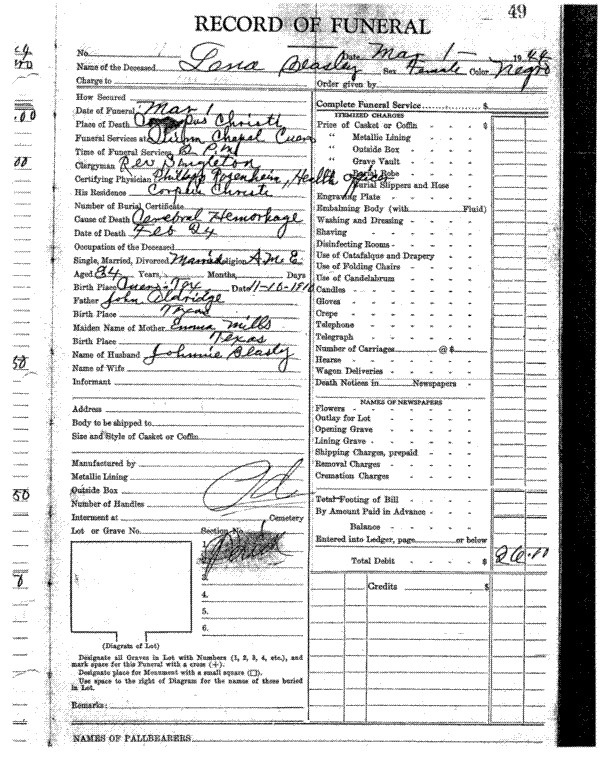 49
RECORD OF FUNERAL
No. Date Mar 1 — 1944
Name of the Deceased Lena Beasley Sex Female Color Negro
Charge to Order given by
How Secured
Date of Funeral Mar 1
Place of Death Corpus Christi
Funeral Services at Chapel Cuero
Time of Funeral Services 2 P.M.
Clergyman Rev Singleton
Certifying Physician Philipp Rosenheim, Health officer
His Residence Corpus Christi
Number of Burial Certificate
Cause of Death Cerebral Hemorhage
Date of Death Feb 24
Occupation of the Deceased
Single, Married, Divorced Married Religion A.M.E
Aged 34 Years, Months, Days
Birth Place Cuero Tex Date 11-10-1910
Father John Aldridge
Birth Place Texas
Maiden Name of Mother Emma Mills
Birth Place Texas
Name of Husband Johnnie Beasly
Name of Wife
Informant
Address
Body to be shipped to
Size and Style of Casket or Coffin
Manufactured by
Metallic Lining
Outside Box
Number of Handles
Interment at Cemetery
Lot or Grave No. Section No.
1.
2.
3.
4.
5.
6.
(Diagram of Lot)
Designate all Graves in Lot with Numbers (1, 2, 3, 4, etc.), and
mark space for this Funeral with a cross (+).
Designate place for Monument with a small square (□).
Use space to the right of Diagram for the names of those buried
in Lot.
Remarks:
NAMES OF PALLBEARERS
Complete Funeral Service $
ITEMIZED CHARGES
Price of Casket or Coffin $
" Metallic Lining
" Outside Box
" Grave Vault
" Burial Robe
" Burial Slippers and Hose
Engraving Plate
Embalming Body (with Fluid)
Washing and Dressing
Shaving
Disinfecting Rooms
Use of Catafalque and Drapery
Use of Folding Chairs
Use of Candelabrum
Candles
Gloves
Crepe
Telephone
Telegraph
Number of Carriages @ $
Hearse
Wagon Deliveries
Death Notices in Newspapers
NAMES OF NEWSPAPERS
Flowers
Outlay for Lot
Opening Grave
Lining Grave
Shipping Charges, prepaid
Removal Charges
Cremation Charges
Total Footing of Bill
By Amount Paid in Advance
Balance
Entered into Ledger, page or below
Total Debit $ 26.00
Credits $